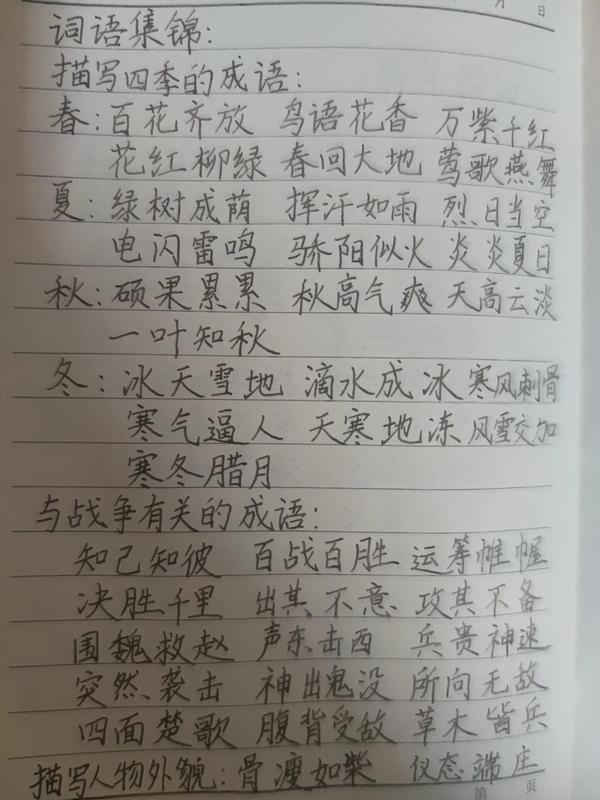 月 日
词语集锦:
描写四季的成语:
春:百花齐放 鸟语花香 万紫千红
花红柳绿 春回大地 莺歌燕舞
夏:绿树成荫 挥汗如雨 烈日当空
电闪雷鸣 骄阳似火 炎炎夏日
秋:硕果累累 秋高气爽 天高云淡
一叶知秋
冬:冰天雪地 滴水成冰 寒风刺骨
寒气逼人 天寒地冻 风雪交加
寒冬腊月
与战争有关的成语:
知己知彼 百战百胜 运筹帷幄
决胜千里 出其不意 攻其不备
围魏救赵 声东击西 兵贵神速
突然袭击 神出鬼没 所向无敌
四面楚歌 腹背受敌 草木皆兵
描写人物外貌:骨瘦如柴 仪态端庄
第 页